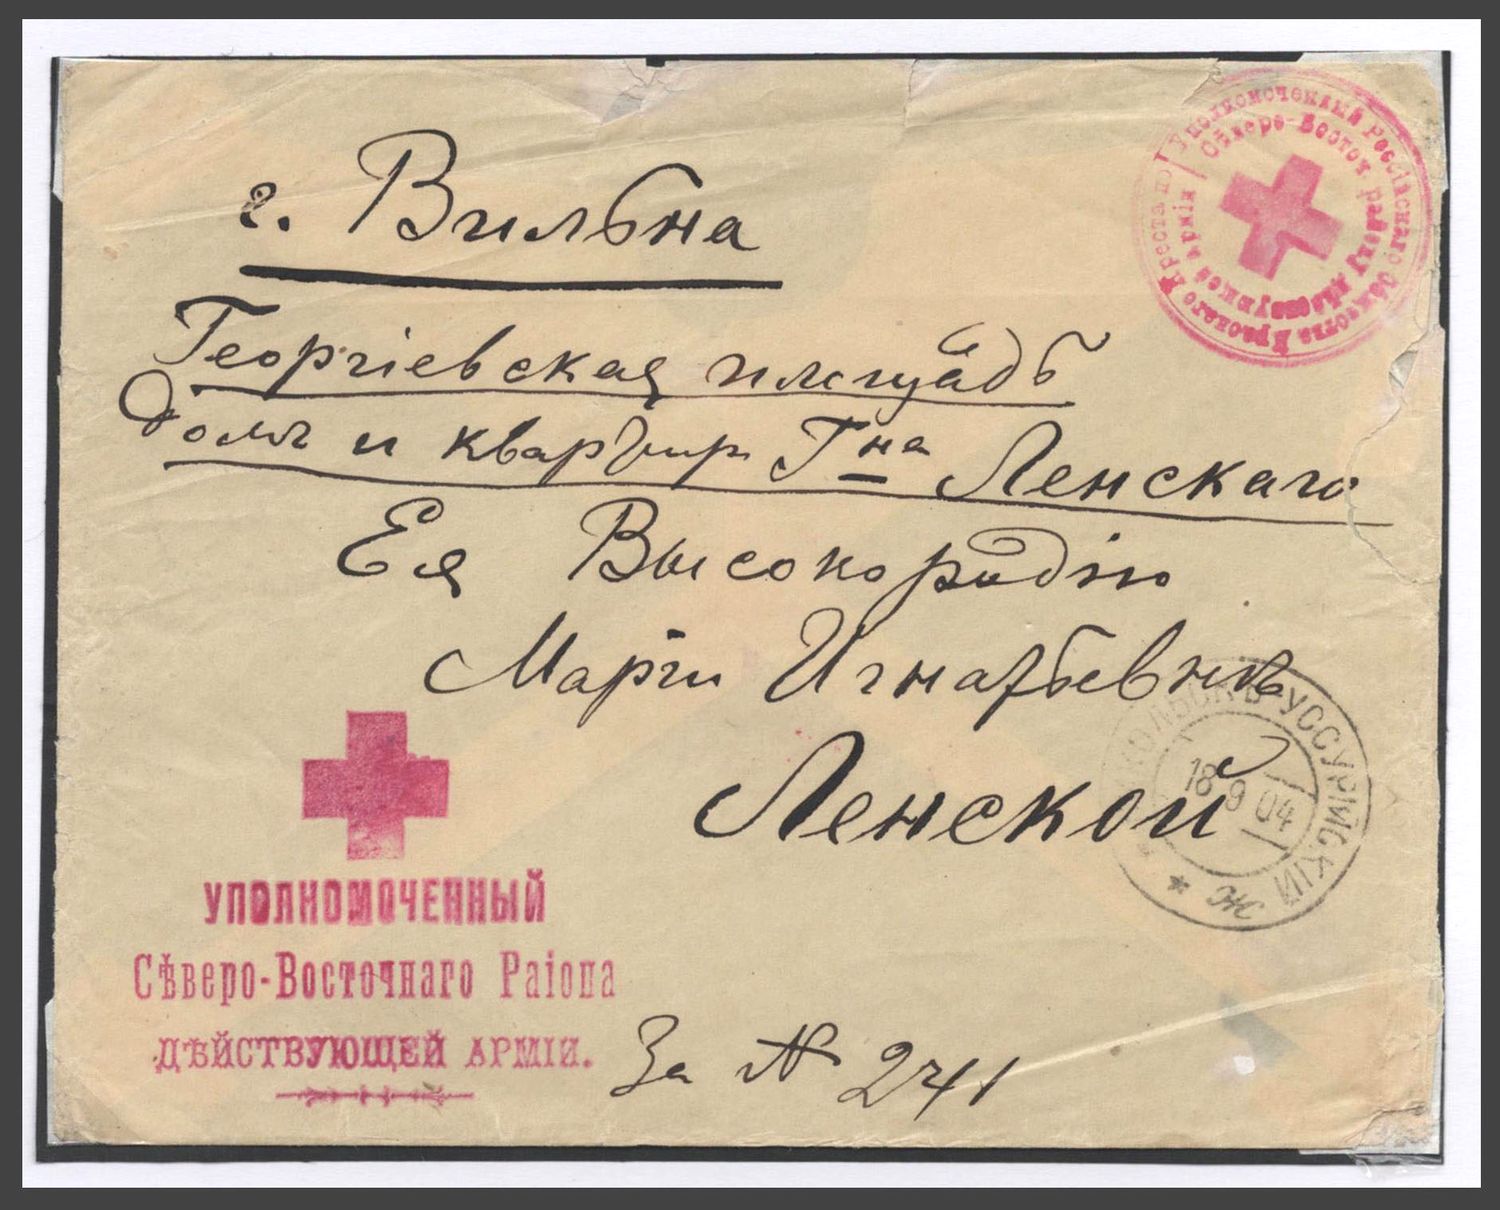 г. Вильна
Георгіевская площадь
Домъ и квартир Гна Ленскаго
Ея Высокородію
Маріи Игнатьевнѣ
Ленской
За № 241
УПОЛНОМОЧЕННЫЙ
Сѣверо-Восточнаго Раіона
ДѢЙСТВУЮЩЕЙ АРМІИ.
Уполномоченный Россійскаго Общества Краснаго Креста по
Сѣверо-Восточ району дѣйствующей арміи
НИКОЛЬСКЪ-УССУРІЙСКІЙ
18 9 04
Ж